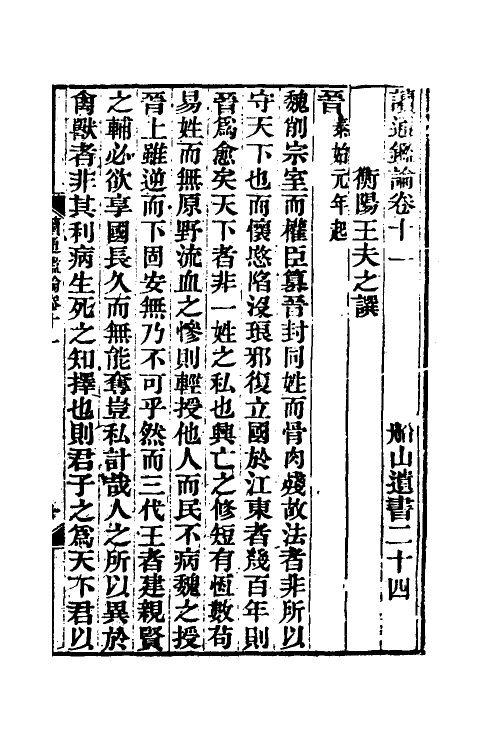 讀通鑑論卷十一　船山遺書二十四
衡陽王夫之譔
晉泰始元年起
魏削宗室而權臣篡晉封同姓而骨肉殘故法者非所以
守天下也而懷愍陷沒琅邪復立國於江東者幾百年則
晉爲愈矣天下者非一姓之私也興亡之修短有恆數苟
易姓而無原野流血之慘則輕授他人而民不病魏之授
晉上雖逆而下固安無乃不可乎然而三代王者建親賢
之輔必欲享國長久而無能奪豈私計哉人之所以異於
禽獸者非其利病生死之知擇也則君子之爲天下君以
讀通鑑論卷十一